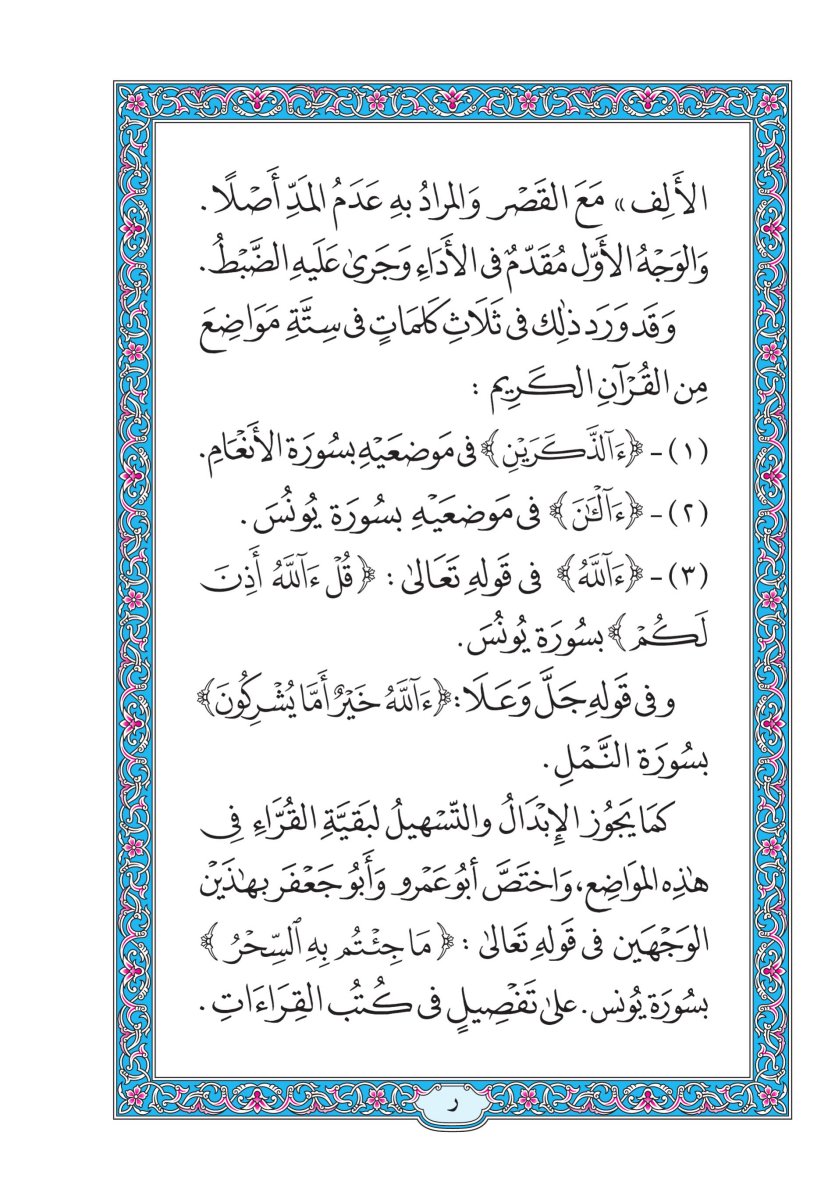 الأَلِف» مَعَ القَصْر وَالمرادُ بهِ عَدَمُ المَدِّ أَصْلًا .
وَالوَجْهُ الأَوَّل مُقَدَّمٌ فى الأَدَاءِ وَجَرىٰ عَلَيهِ الضَّبْطُ.
وَقَد وَرَد ذٰلِك فى ثَلَاثِ كَلمَاتٍ فى سِتَّةِ مَوَاضِعَ
مِن القُرْآنِ الكَرِيم :
(١) - ﴿ءَآلذَّكَرَيْنِ﴾ فى مَوضعَيْهِ بسُورَة الأَنْعَامِ.
(٢) - ﴿ءَآلْـَٰٔنَ﴾ فى مَوضعَيْهِ بسُورَة يُونُسَ .
(٣) - ﴿ءَآللَّهُ﴾ فى قَولهِ تَعَالىٰ : ﴿قُلْ ءَآللَّهُ أَذِنَ
لَكُمْ﴾ بسُورَة يُونُسَ.
وفى قَولهِ جَلَّ وَعَلَا: ﴿ءَآللَّهُ خَيْرٌ أَمَّا يُشْرِكُونَ﴾
بسُورَة النَّمْلِ .
كمَا يَجُوز الإِبْدَالُ والتّسْهيلُ لبَقيَّةِ القُرَّاءِ فِى
هٰذِه المَوَاضِع، وَاختَصَّ أبُو عَمْرو وَأَبُو جَعْفَر بهٰذَيْن
الوَجْهَين فى قَولهِ تَعَالىٰ : ﴿مَا جِئْتُم بِهِ ٱلسِّحْرُ﴾
بسُورَة يُونس. علىٰ تَفْصِيلٍ فى كُتُب القِرَاءَاتِ .
ر